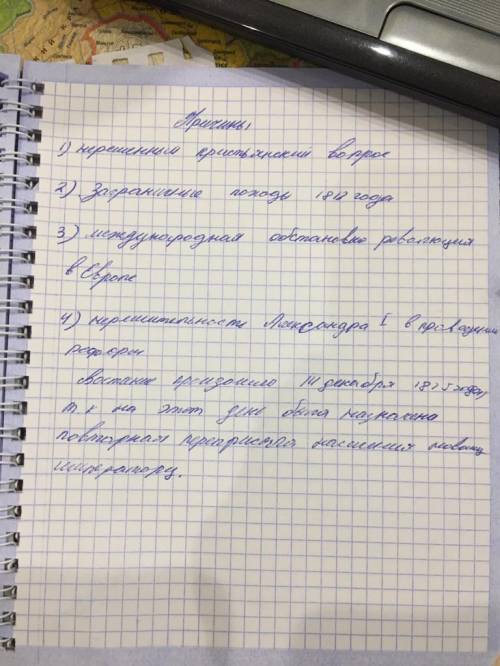 Причины
1) нерешенный крестьянский вопрос
2) Заграничные походы 1812 года
3) международная обстановка революция
в Европе
4) нерешительность Александра I в проведении
реформ
Востание произошло 14 декабря 1825 года,
т.к на этот день была назначена
повторная присяга новому
императору.